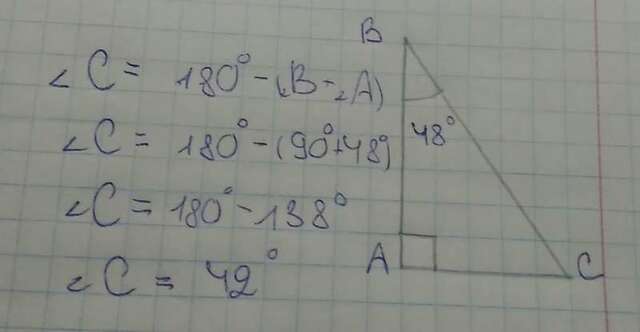 ∠C = 180° - (B - ∠A)
∠C = 180° - (90° + 48°)
∠C = 180° - 138°
∠C = 42°
B
48°
A
C